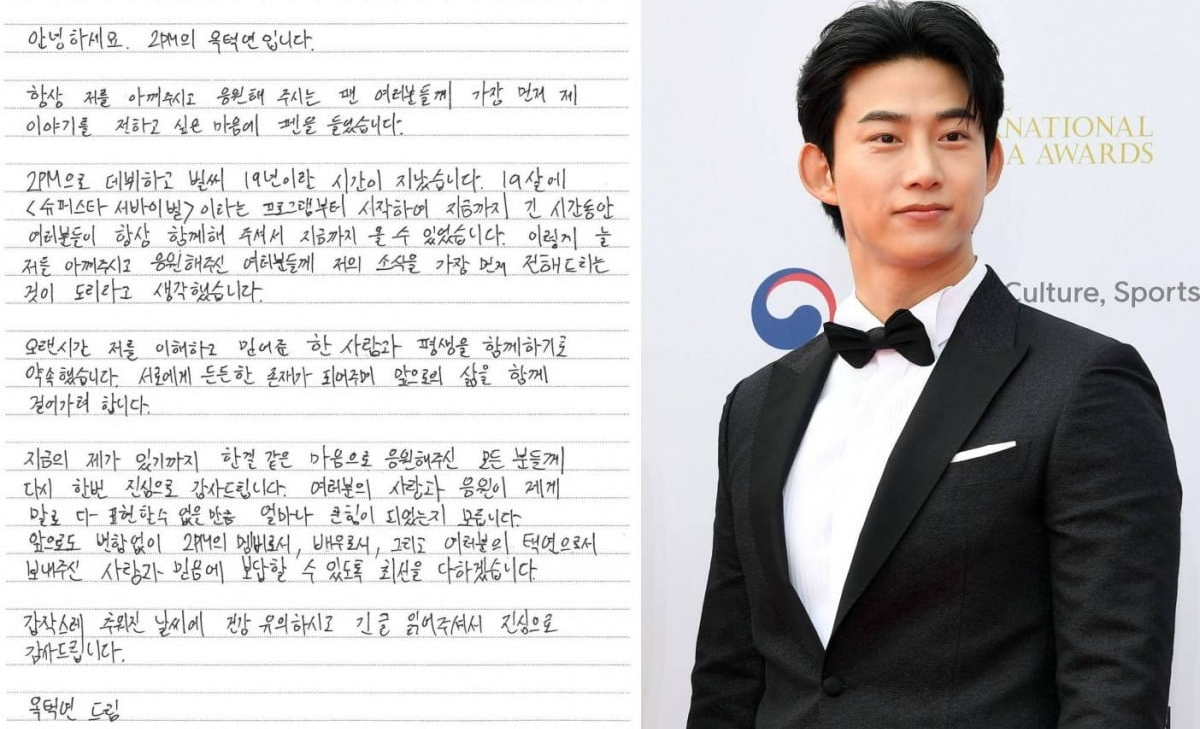 안녕하세요. 2PM의 옥택연입니다.
항상 저를 아껴주시고 응원해 주시는 팬 여러분들께 가장 먼저 제
이야기를 전하고 싶은 마음에 펜을 들었습니다.
2PM으로 데뷔하고 벌써 19년이란 시간이 지났습니다. 19살에
<슈퍼스타 서바이벌>이라는 프로그램부터 시작하여 지금까지 긴 시간동안
여러분들이 항상 함께해 주셔서 지금까지 올 수 있었습니다. 이렇게 늘
저를 아껴주시고 응원해주신 여러분들께 저의 소식을 가장 먼저 전해드리는
것이 도리라고 생각했습니다.
오랜시간 저를 이해하고 믿어준 한 사람과 평생을 함께하기로
약속했습니다. 서로에게 든든한 존재가 되어주며 앞으로의 삶을 함께
걸어가려 합니다.
지금의 제가 있기까지 한결 같은 마음으로 응원해주신 모든 분들께
다시 한번 진심으로 감사드립니다. 여러분의 사랑과 응원이 제게
말로 다 표현할수 없을만큼 얼마나 큰힘이 되었는지 모릅니다.
앞으로도 변함없이 2PM의 멤버로서, 배우로서, 그리고 여러분의 택연으로서
보내주신 사랑과 믿음에 보답할 수 있도록 최선을 다하겠습니다.
갑작스레 추워진 날씨에 건강 유의하시고 긴 글 읽어주셔서 진심으로
감사드립니다.
옥택연 드림
RNATIONAL
A AWARDS
Culture, Sports